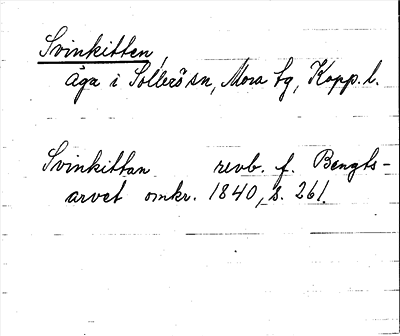 Svinkitten,
äga i Sollerö sn, Mora tg, Kopp. l.
Svinkittan revb. f. Bengts-
arvet omkr. 1840, s. 261.